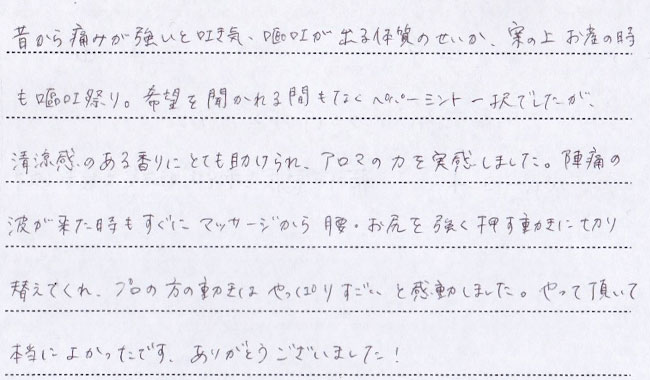 昔から痛みが強いと吐気、嘔吐が出る体質のせいか、案の上お産の時
も嘔吐祭り。希望を聞かれる間もなくペパーミント一択でしたが、
清涼感のある香りにとても助けられ、アロマの力を実感しました。陣痛の
波が来た時もすぐにマッサージから腰・お尻を強く押す動きに切り
替えてくれ、プロの方の動きはやっぱりすごい、と感動しました。やって頂いて
本当によかったです、ありがとうございました！